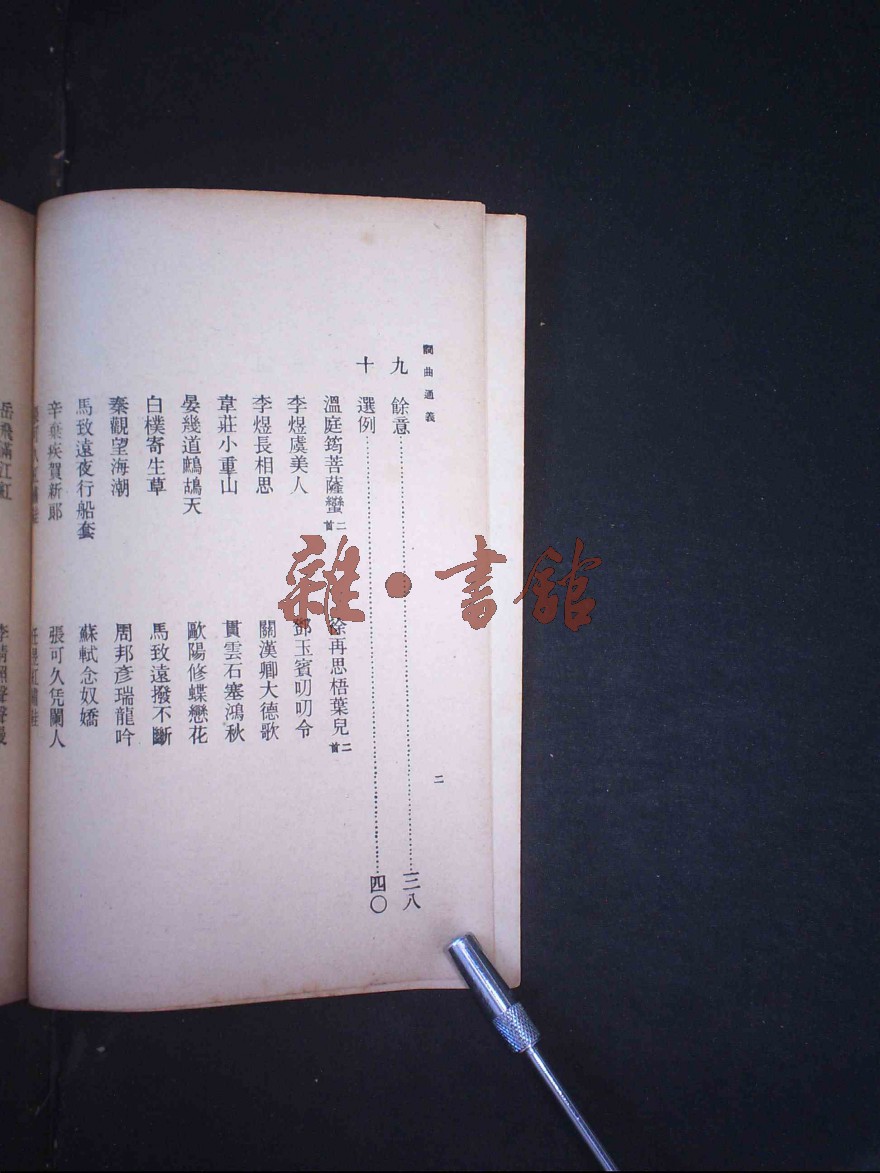 詞曲通義
二
九 餘意……三八
十 選例……四〇
溫庭筠菩薩蠻二首
徐再思梧葉兒二首
李煜虞美人
鄧玉賓叨叨令
李煜長相思
關漢卿大德歌
韋莊小重山
貫雲石塞鴻秋
晏幾道鷓鴣天
歐陽修蝶戀花
白樸寄生草
馬致遠撥不斷
秦觀望海潮
周邦彥瑞龍吟
馬致遠夜行船套
蘇軾念奴嬌
辛棄疾賀新郎
張可久凭闌人
岳飛滿江紅
李清照聲聲慢
雜·書館